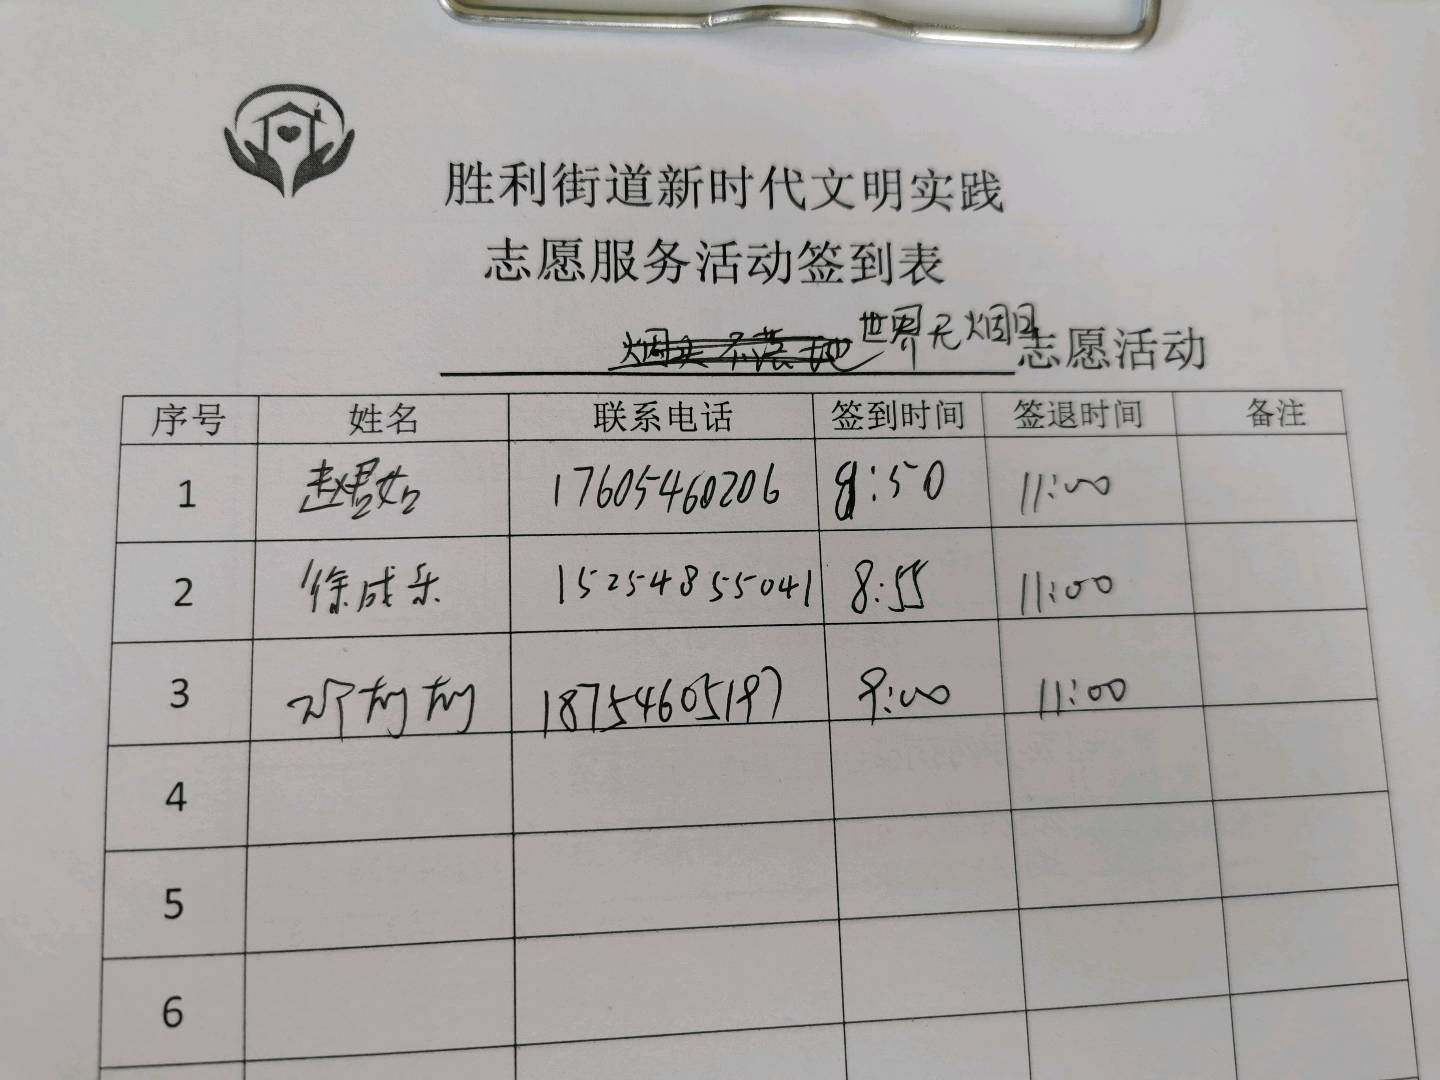 胜利街道新时代文明实践
志愿服务活动签到表
烟头不落地 世界无烟日 志愿活动
序号 姓名 联系电话 签到时间 签退时间 备注
1 赵君如 17605460206 8:50 11:00
2 徐成乐 15254855041 8:55 11:00
3 邓树树 18754605197 9:00 11:00
4
5
6